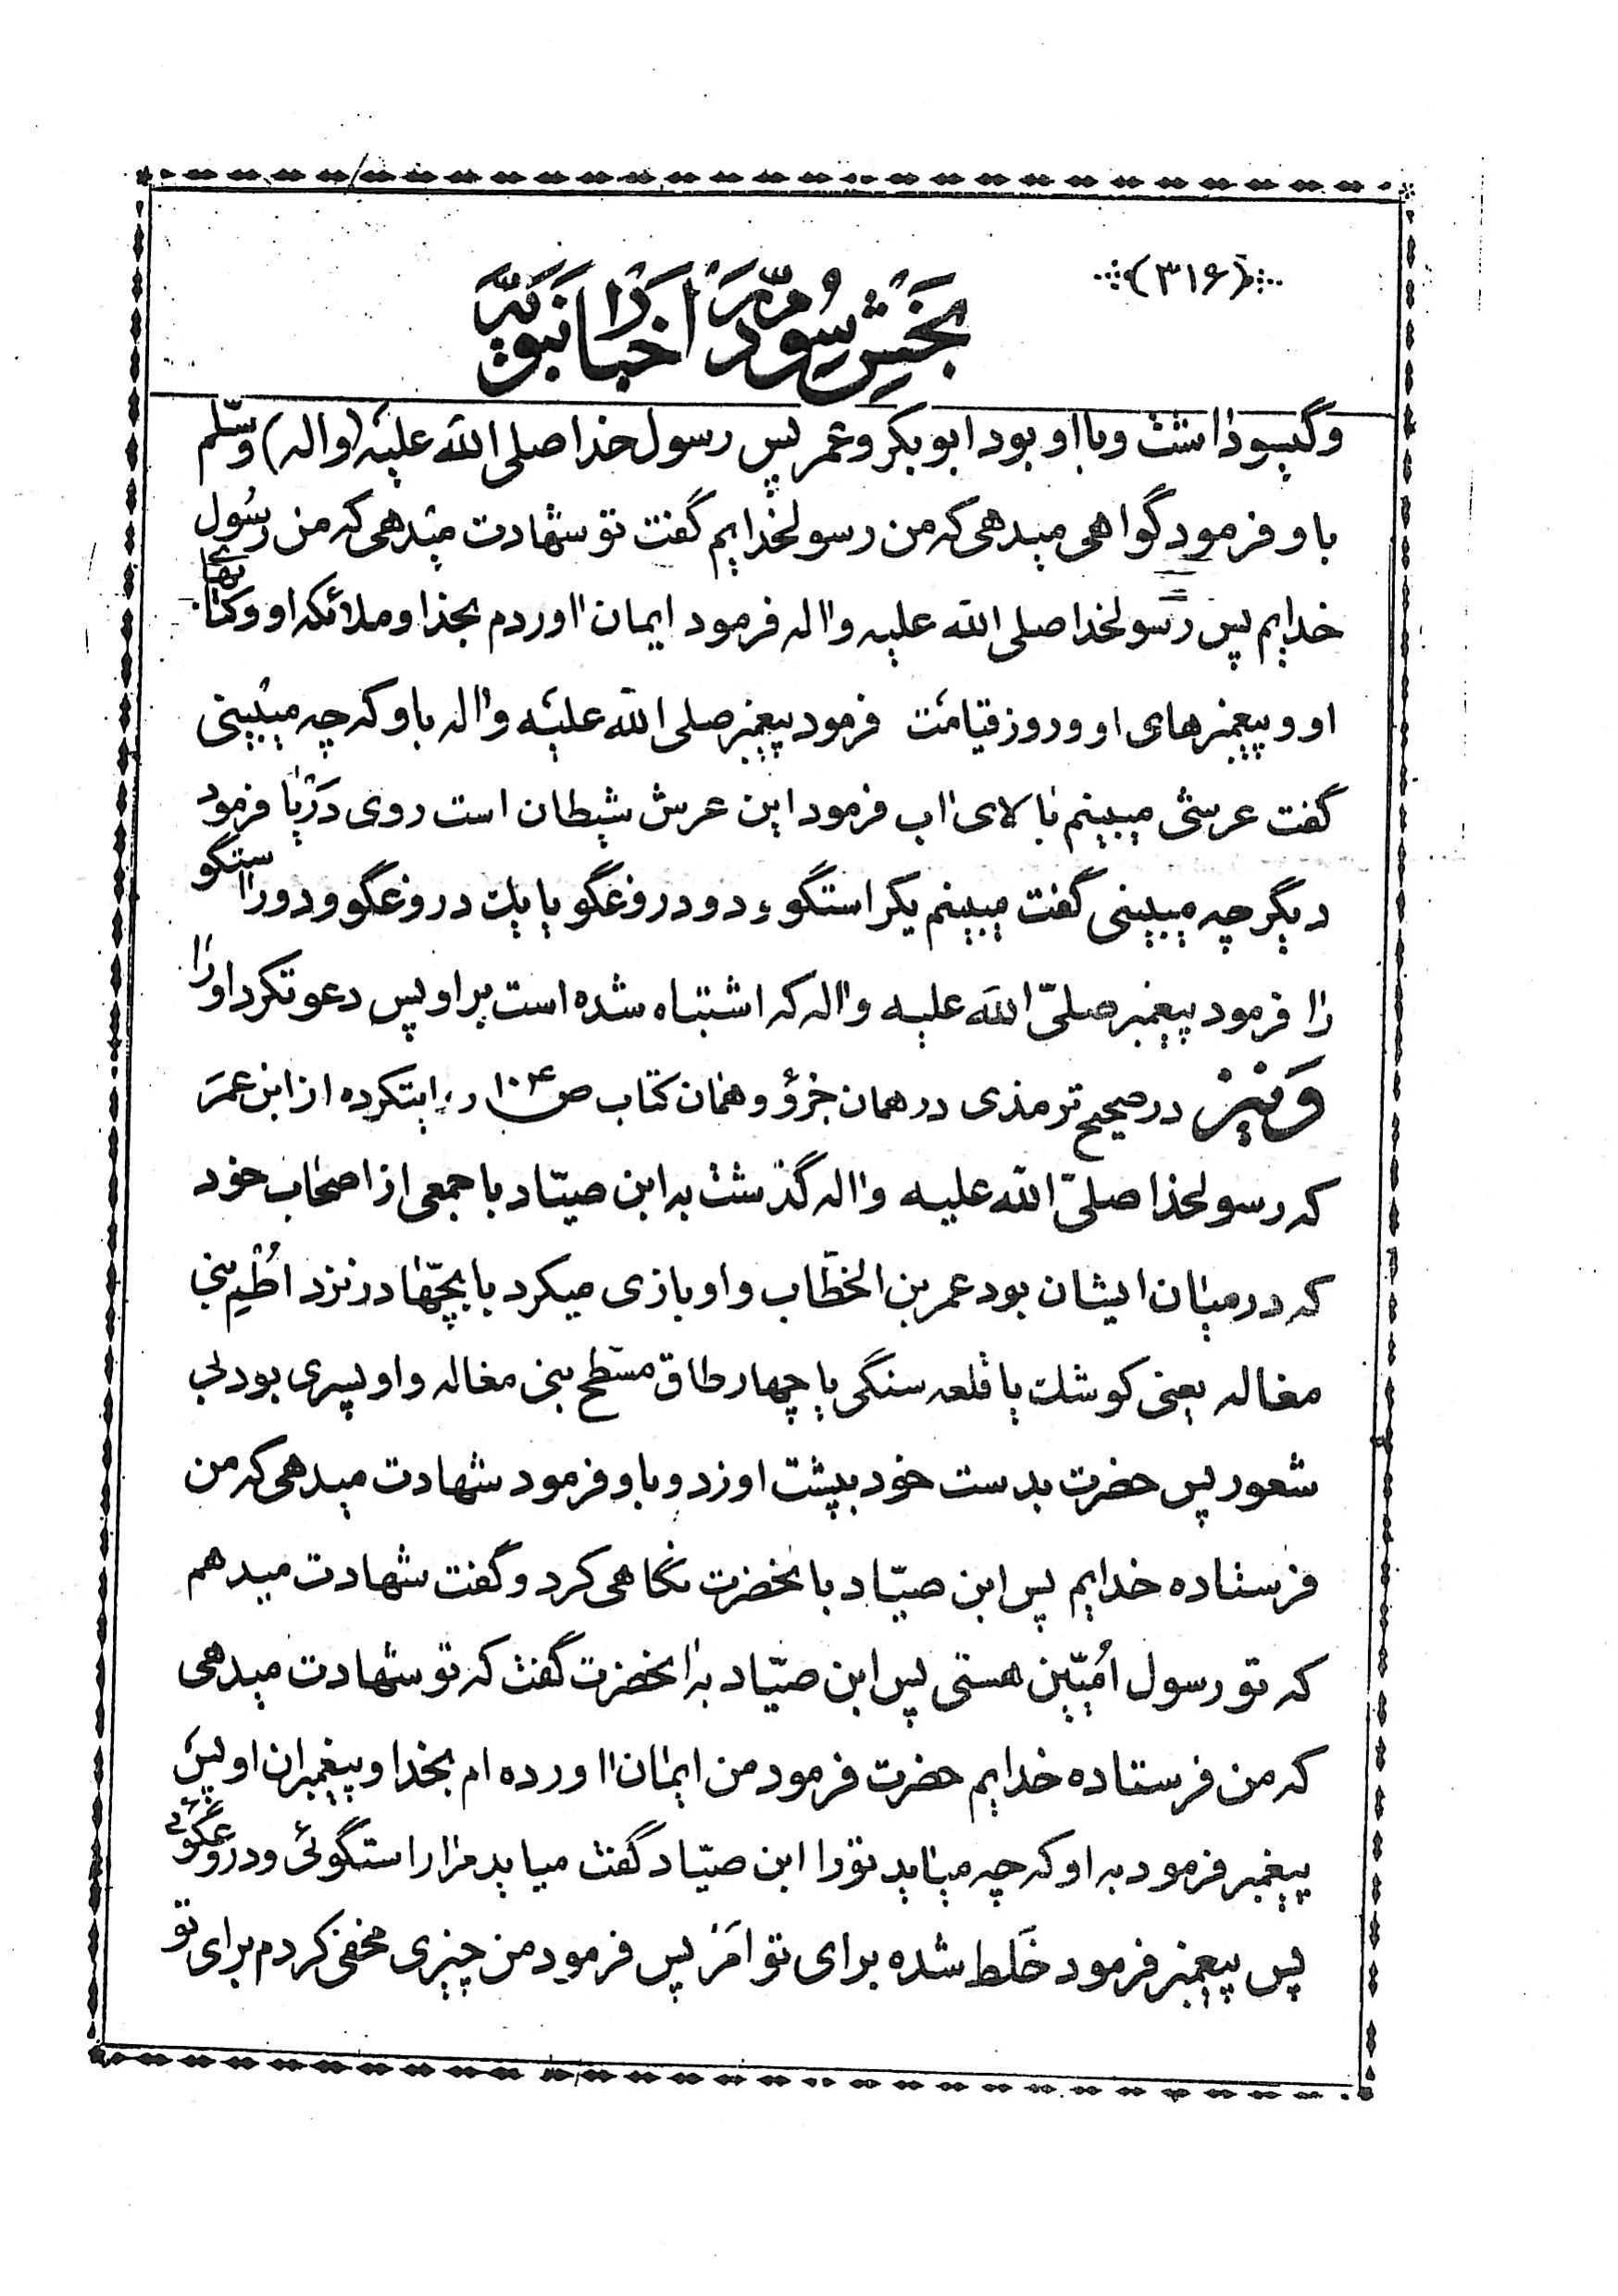 (۳۱۶)
بخش سوم در اخبار نبویه
و گیسو داشت و با او بود ابوبکر و عمر پس رسول خدا صلی الله علیه (واله) وسلّم
باو فرمود گواهی میدهی که من رسولخدایم گفت تو شهادت میدهی که من رسُول
خدایم پس رسولخدا صلی الله علیه واله فرمود ایمان اوردم بخدا و ملائکه او و کتابهای
او و پیغمبرهای او و روز قیامت فرمود پیغمبر صلی الله علیه واله باو که چه میبینی
گفت عرشی میبینم بالای اب فرمود این عرش شیطان است روی دریا فرمود
دیگر چه میبینی گفت میبینم یکراستگو و دو دروغگو یا یک دروغگو و دو راستگو
را فرمود پیغمبر صلیّ الله علیه واله که اشتباه شده است بر او پس دعوتکرد او را
وَنیز در صحیح ترمذی در همان جزؤ و همان کتاب ص ۱۰۴ روایتکرده از ابن عمَر
که رسولخدا صلیّ الله علیه واله گذشت به ابن صیّاد با جمعی از اصحاب خود
که در میان ایشان بود عمر بن الخطّاب و او بازی میکرد با بچّها در نزد اُطُم بنی
مغاله یعنی کوشک یا قلعه سنگی یا چهار طاق مسطح بنی مغاله و او پسری بود بی
شعور پس حضرت بدست خود بپشت او زد و باو فرمود شهادت میدهی که من
فرستاده خدایم پس ابن صیّاد بانحضرت نگاهی کرد و گفت شهادت میدهم
که تو رسول اُمیّین هستی پس ابن صیّاد به انحضرت گفت که تو شهادت میدهی
که من فرستاده خدایم حضرت فرمود من ایمان اورده ام بخدا و پیغمبران او پس
پیغمبر فرمود به او که چه میاید تو را ابن صیّاد گفت میاید مرا راستگوئی و دروغگوئی
پس پیغمبر فرمود خَلط شده برای تو امر پس فرمود من چیزی مخفی کردم برای تو